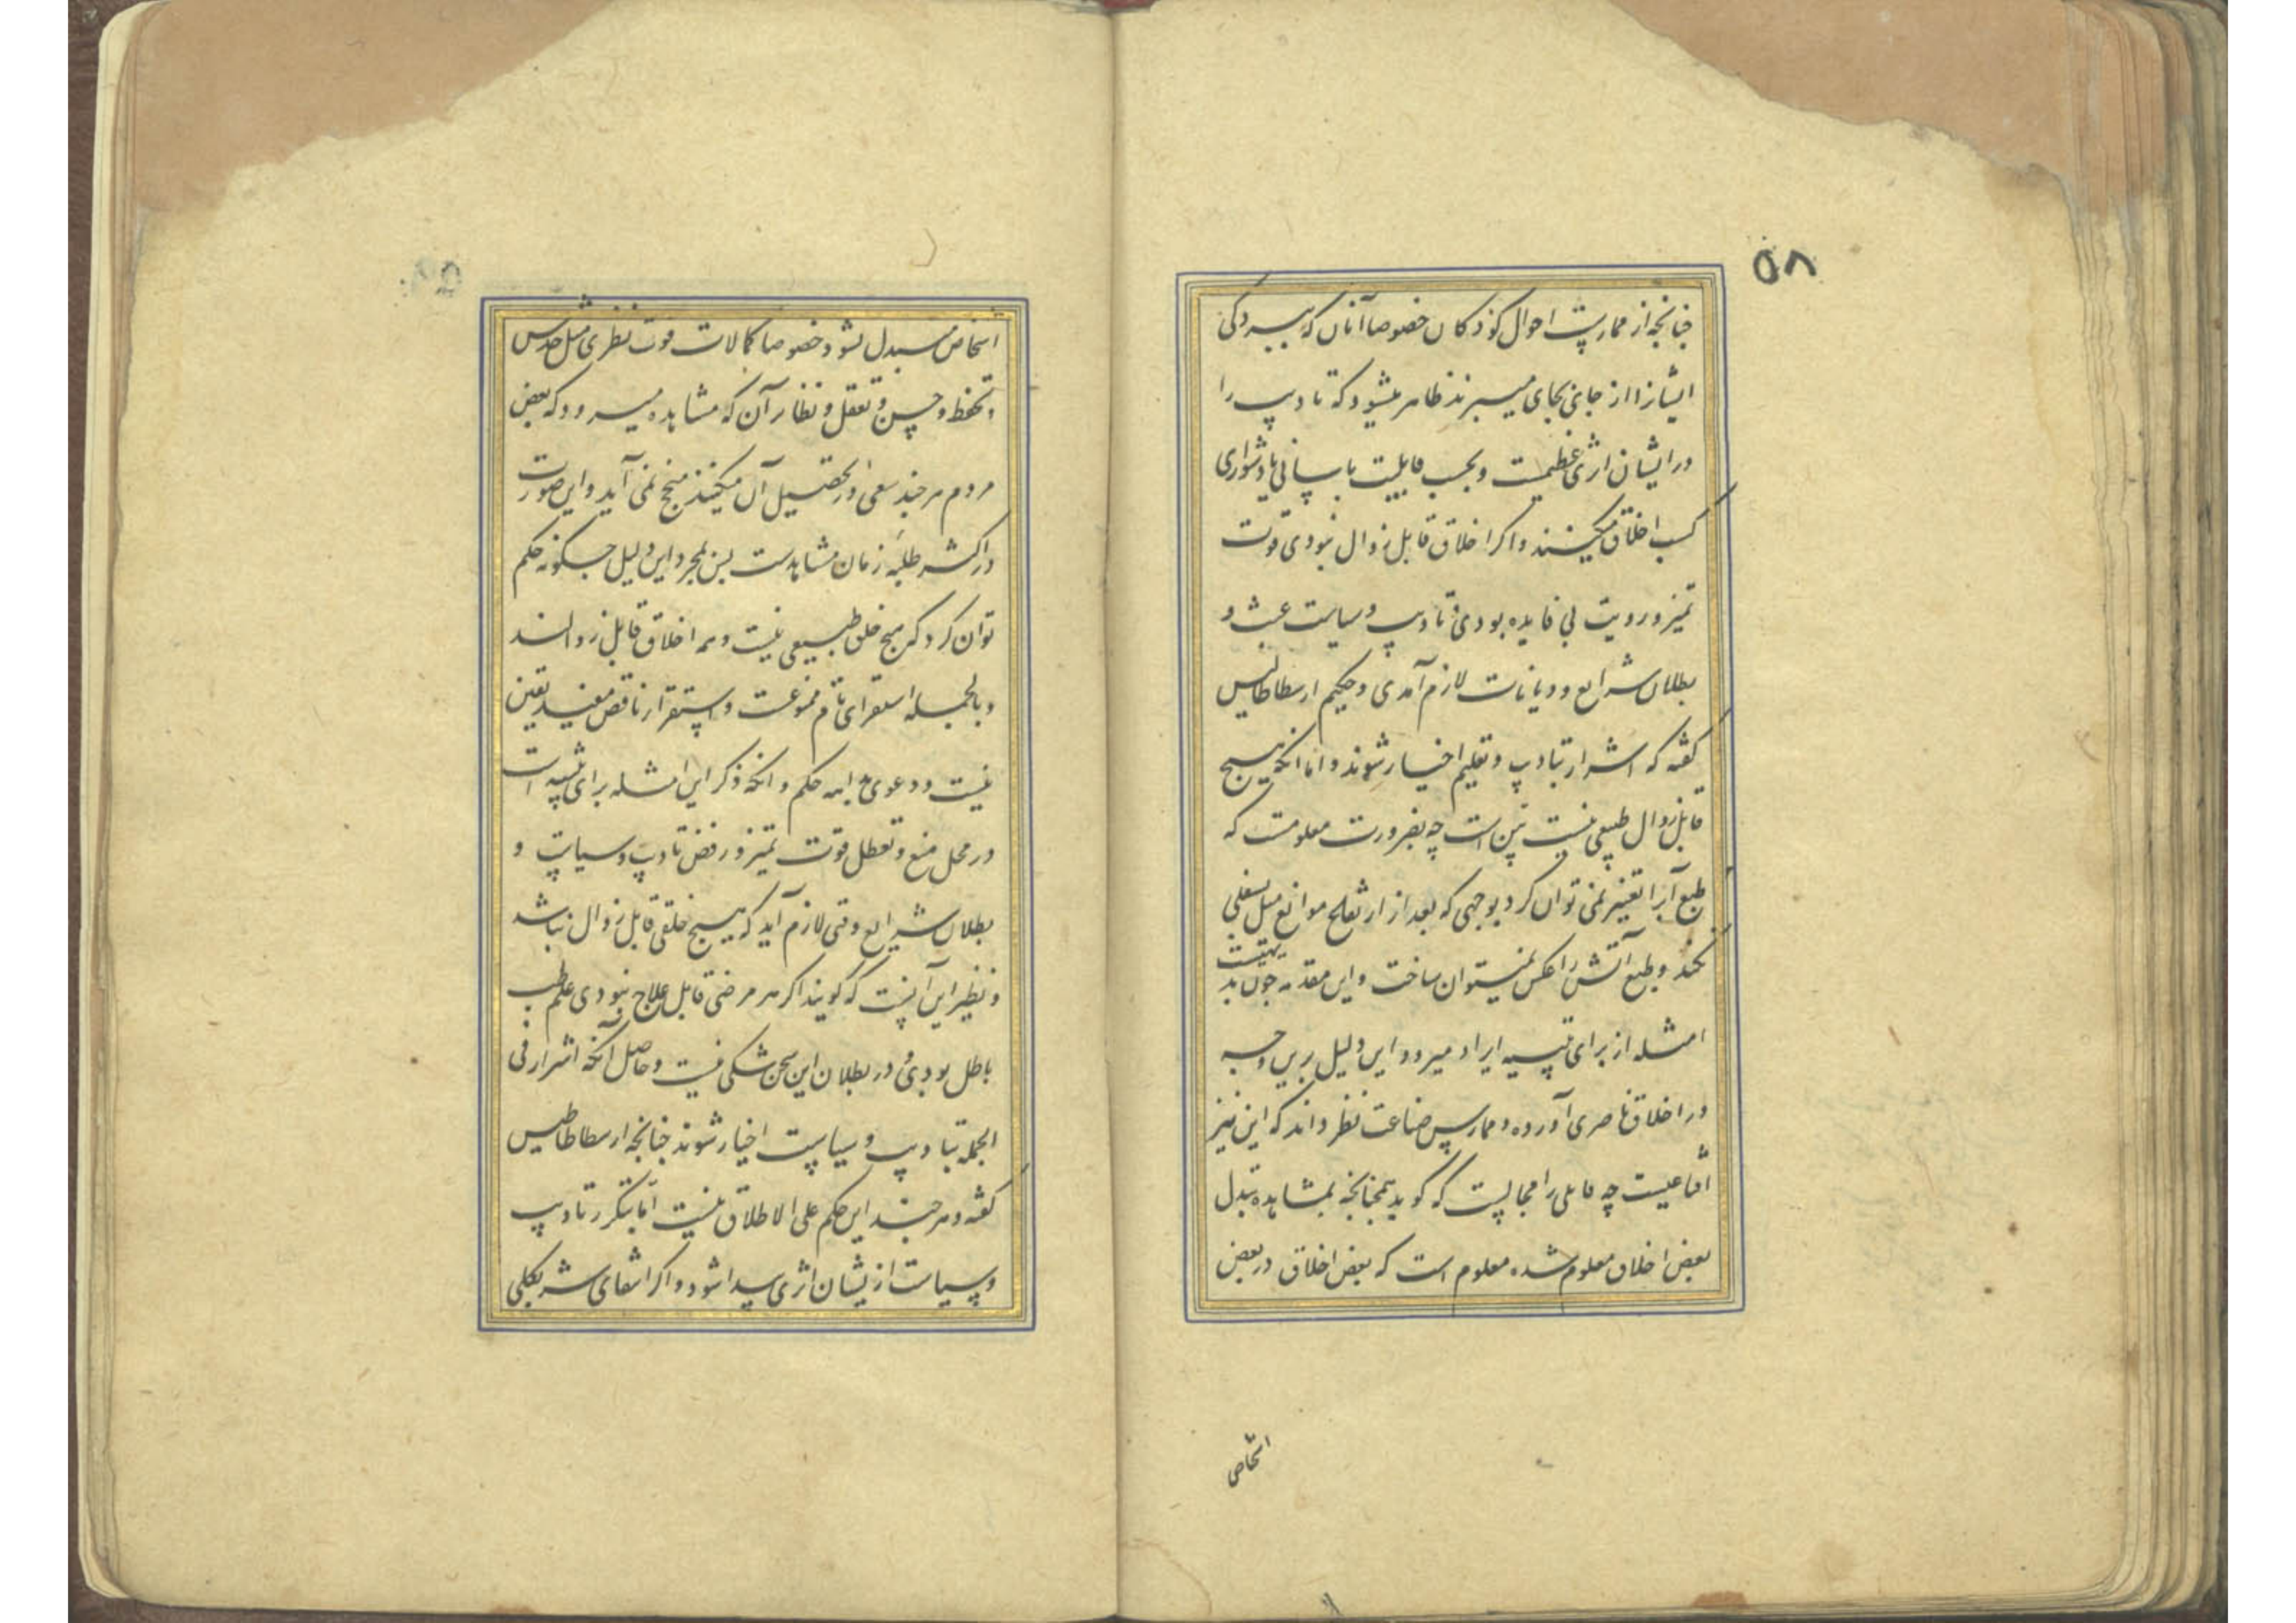 ۵۸
چنانچه از ممارست احوال کودکان خصوصا آنان که ببردگی
ایشانرا از جائی بجای میبرند ظاهر میشود که تادیب را
در ایشان اثری عظیمست و بحسب قابلیت باسانی یا دشواری
کسب اخلاق میکنند و اگر اخلاق قابل زوال نبودی قوت
تمیز و رویت بی فایده بودی و تادیب و سیاست عبث و
بطلان شرایع و دیانات لازم آمدی و حکیم ارسطاطالیس
گفته که اشرار بتادیب و تعلیم اخیار شوند و اما آنکه هیچ
قابل زوال طبیعی نیست بین است چه بضرورت معلومست که
طبع آبرا تغییر نمی توان کرد بوجهی که بعد از ارتفاع موانع میل بسفلی
نکند و طبع آتش را عکس نمیتوان ساخت و این مقدمه چون بدیهیست
امثله از برای تنبیه ایراد میرود این دلیل برین وجه
در اخلاق ناصری آورده و ممارس صناعت نظر داند که این نیز
اقناعیست چه قایلی را مجالست که گوید همچنانچه بمشاهده تبدل
بعض اخلاق معلوم شده معلوم است که بعض اخلاق در بعض
اشخاص
اشخاص مبدل نشود خصوصا کمالات قوت نظری مثل حدس
و تحفظ و حسن و تعقل و نظایر آن که مشاهده میرود که بعض
مردم هر چند سعی در تحصیل آن میکنند منجح نمی آید و این صورت
در اکثر طلبه زمان مشاهدست پس بمجرد این دلیل چگونه حکم
توان کرد که هیچ خلق طبیعی نیست و همه اخلاق قابل زوالند
و بالجمله استقرای تام ممنوعست و استقرار ناقص مفید یقین
نیست و دعوی بداهه حکم و آنکه ذکر این امثله برای تنبیه است
در محل منع و تعطل قوت تمیز و رفض تادیب و سیاست و
بطلان شرایع وقتی لازم آید که هیچ خلقی قابل زوال نباشد
و نظیر این آنست که گویند اگر هر مرضی قابل علاج نبودی علم طب
باطل بودی و در بطلان این سخن شکی نیست و حاصل آنکه اشرار فی
الجمله بتادیب و سیاست اخیار شوند چنانچه ارسطاطالیس
گفته و هر چند این حکم علی الاطلاق نیست اما بتکرر تادیب
و سیاست از یشان اثری پیدا شود و اگر انتفای شر بکلی